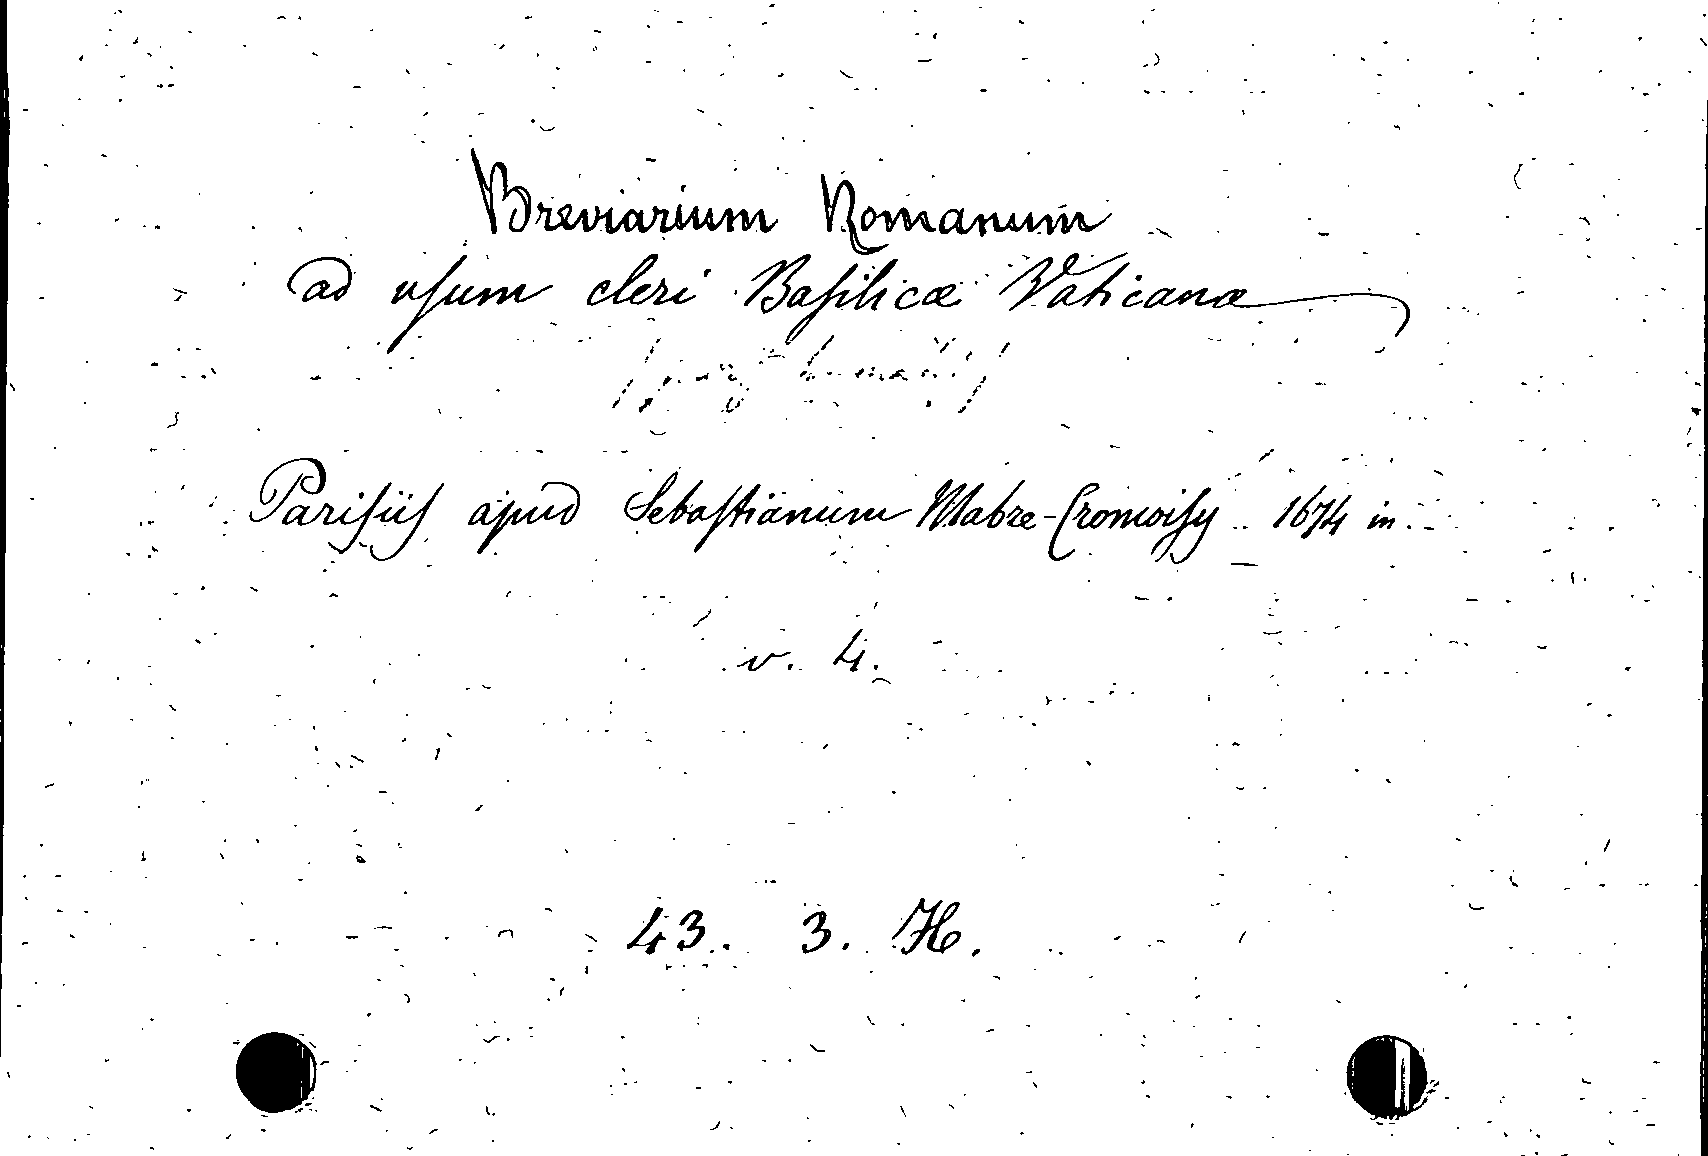 Breviarium Romanum
ad usum cleri Basilicæ Vaticanæ
Parisiis apud Sebastianum Mabre-Cromoisy 1674 in.
v. 4.
43. 3. H.